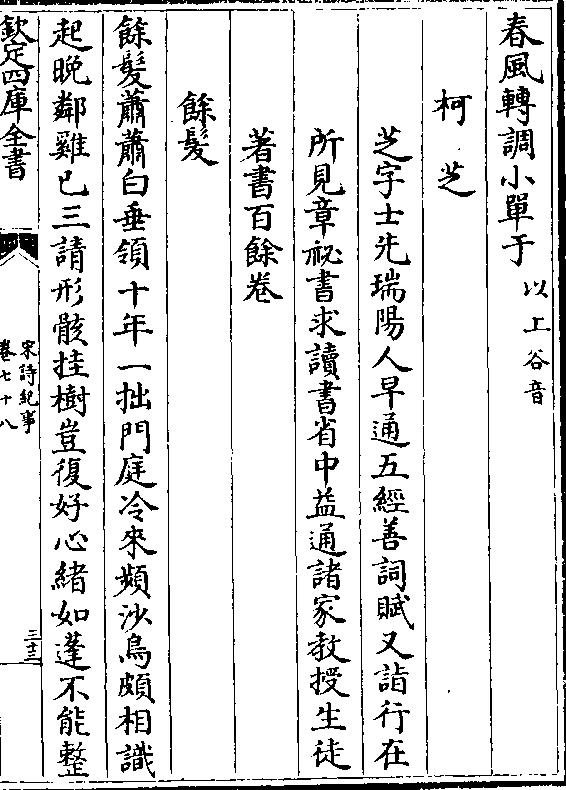 春風轉調小單于 以上谷音
柯芝
芝字士先瑞陽人早通五經善詞賦又詣行在
所見章祕書求讀書省中益通諸家教授生徒
著書百餘卷
餘髮
餘髮蕭蕭白垂領十年一拙門庭冷來頻沙鳥頗相識
起晚鄰雞已三請形骸挂樹豈復好心緒如蓬不能整
欽定四庫全書
宋詩紀事
卷七十八
三十三